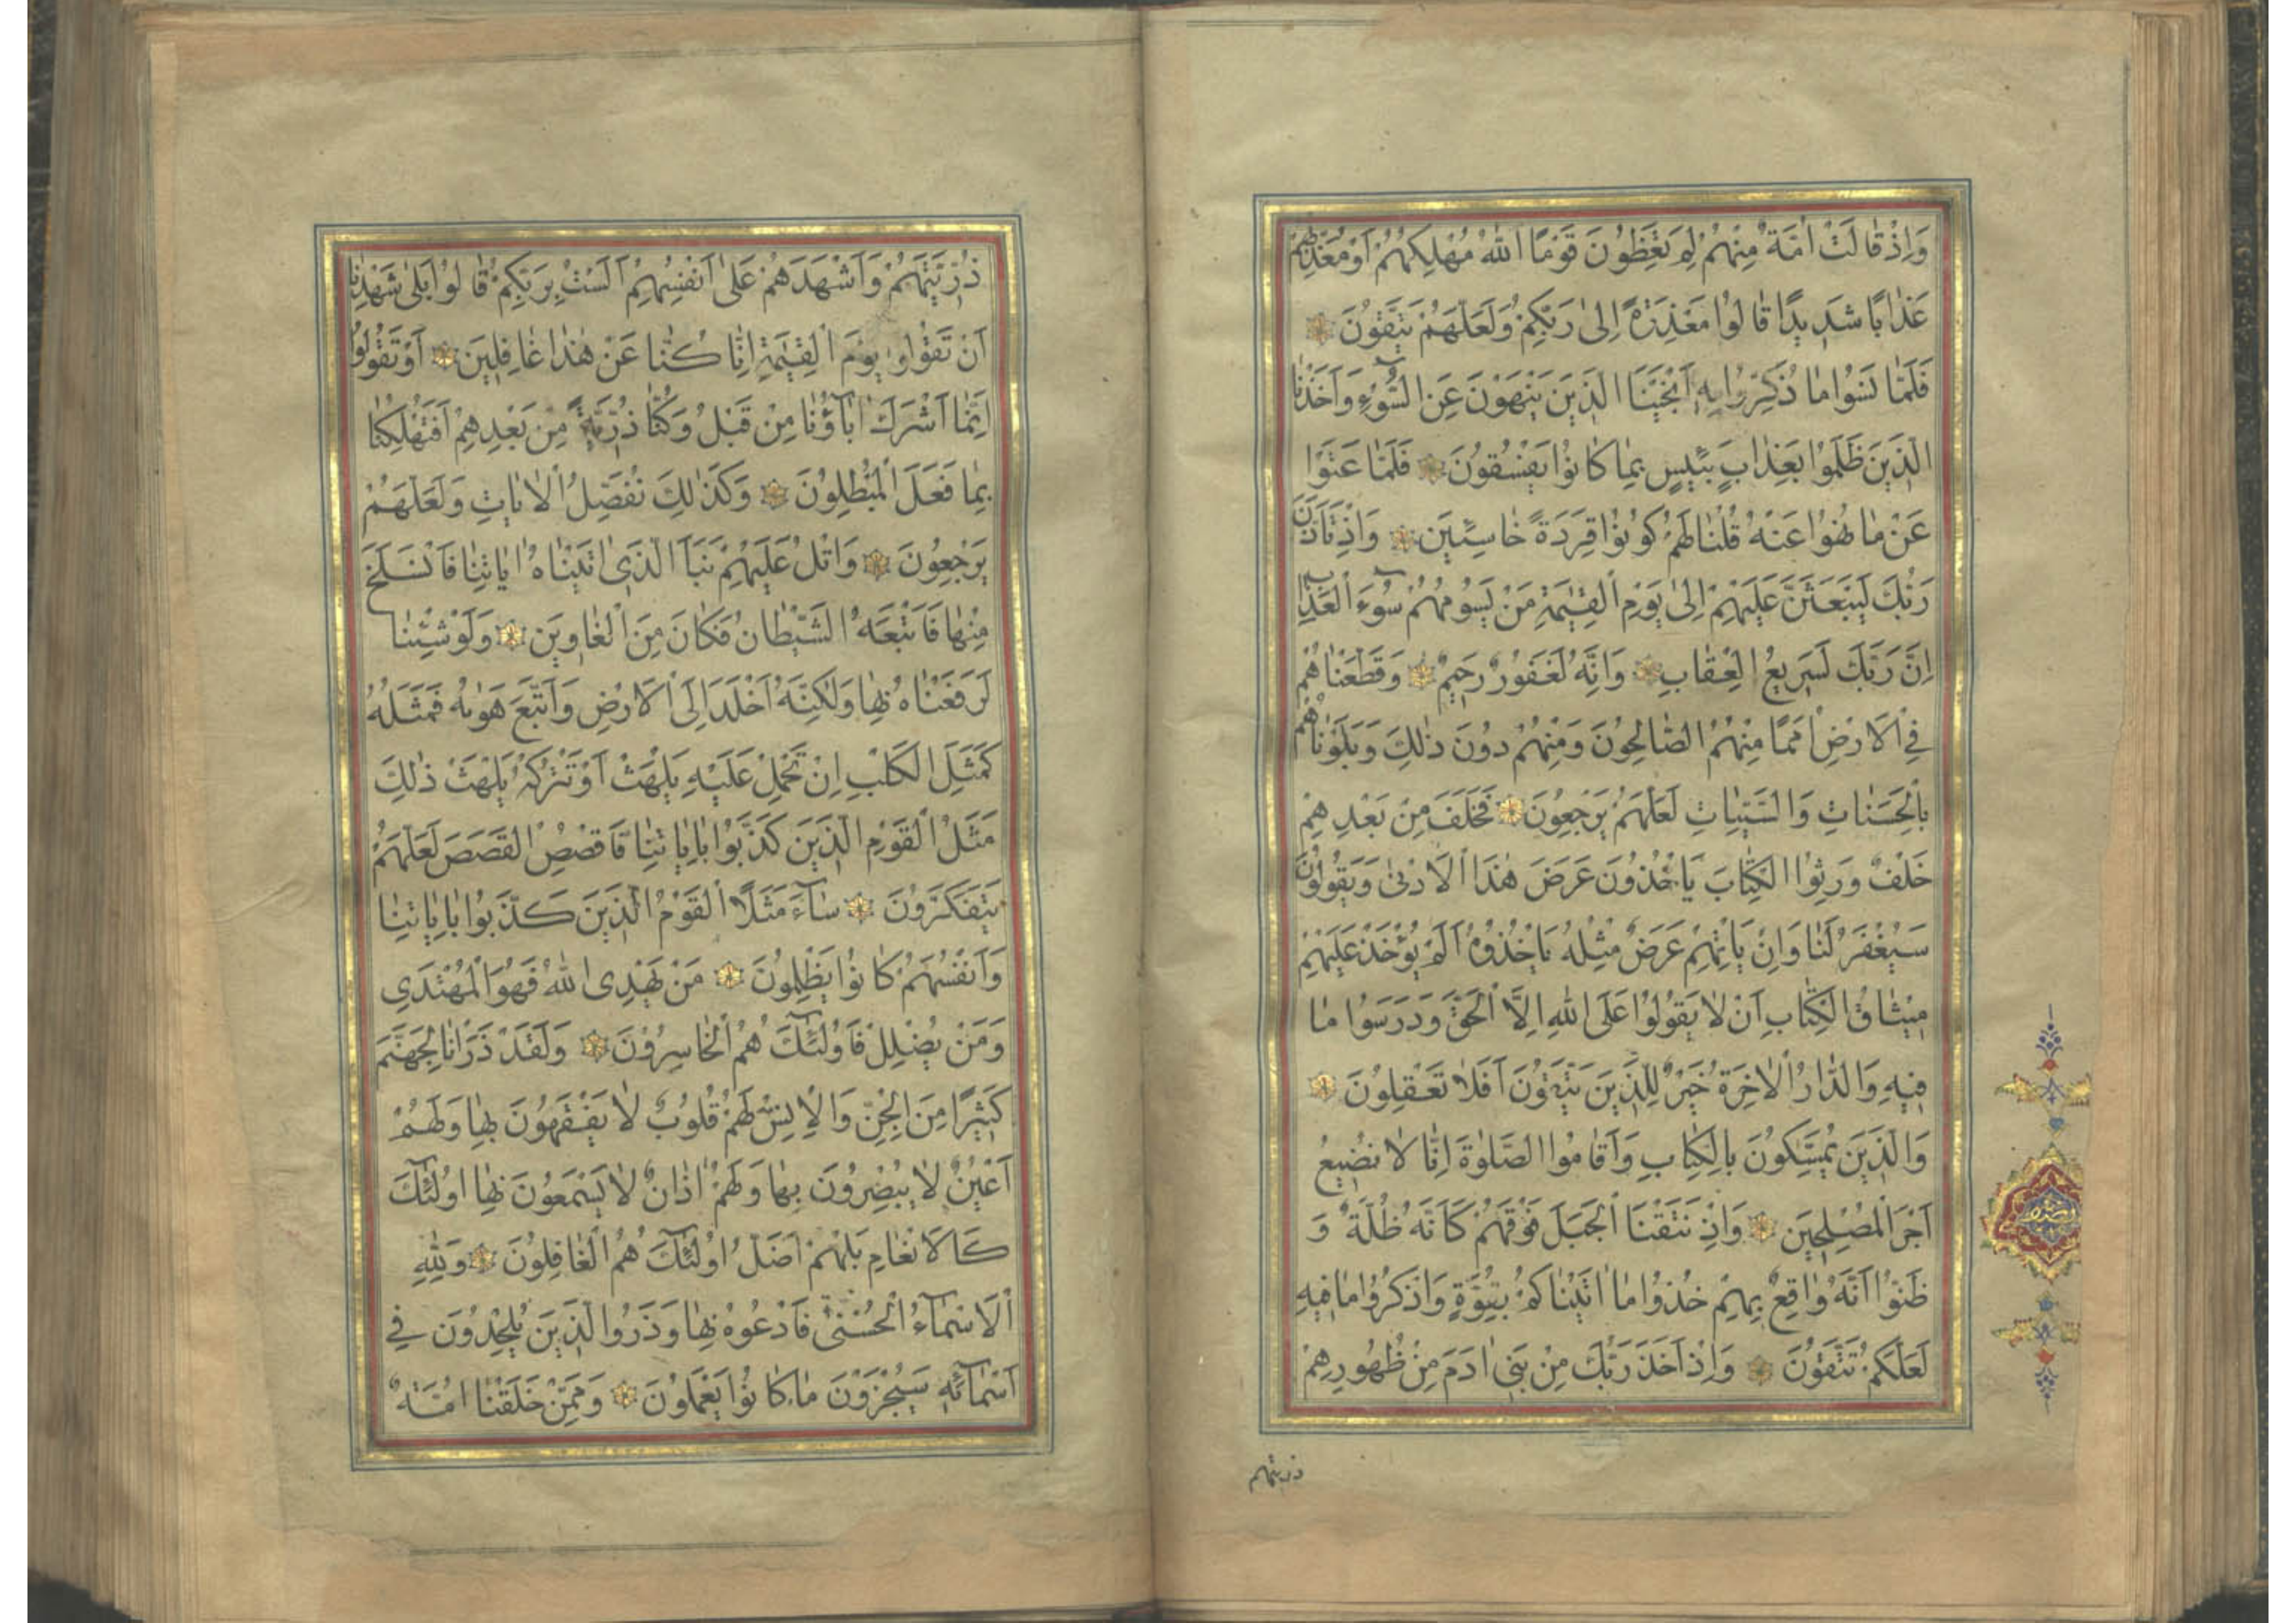 وَاِذْ قَالَتْ اُمَّةٌ مِنْهُمْ لِمَ تَعِظُونَ قَوْمًا اللّٰهُ مُهْلِكُهُمْ اَوْ مُعَذِّبُهُمْ
عَذَابًا شَدِيدًا قَالُوا مَعْذِرَةً اِلٰى رَبِّكُمْ وَلَعَلَّهُمْ يَتَّقُونَ
فَلَمَّا نَسُوا مَا ذُكِّرُوا بِهِ اَنْجَيْنَا الَّذِينَ يَنْهَوْنَ عَنِ السُّوءِ وَاَخَذْنَا
الَّذِينَ ظَلَمُوا بِعَذَابٍ بَئِيسٍ بِمَا كَانُوا يَفْسُقُونَ فَلَمَّا عَتَوْا
عَنْ مَا نُهُوا عَنْهُ قُلْنَا لَهُمْ كُونُوا قِرَدَةً خَاسِئِينَ وَاِذْ تَاَذَّنَ
رَبُّكَ لَيَبْعَثَنَّ عَلَيْهِمْ اِلٰى يَوْمِ الْقِيٰمَةِ مَنْ يَسُومُهُمْ سُوءَ الْعَذَابِ
اِنَّ رَبَّكَ لَسَرِيعُ الْعِقَابِ وَاِنَّهُ لَغَفُورٌ رَحِيمٌ وَقَطَّعْنَاهُمْ
فِي الْاَرْضِ اُمَمًا مِنْهُمُ الصَّالِحُونَ وَمِنْهُمْ دُونَ ذٰلِكَ وَبَلَوْنَاهُمْ
بِالْحَسَنَاتِ وَالسَّيِّئَاتِ لَعَلَّهُمْ يَرْجِعُونَ فَخَلَفَ مِنْ بَعْدِهِمْ
خَلْفٌ وَرِثُوا الْكِتَابَ يَاْخُذُونَ عَرَضَ هٰذَا الْاَدْنٰى وَيَقُولُونَ
سَيُغْفَرُ لَنَا وَاِنْ يَاْتِهِمْ عَرَضٌ مِثْلُهُ يَاْخُذُوهُ اَلَمْ يُؤْخَذْ عَلَيْهِمْ
مِيثَاقُ الْكِتَابِ اَنْ لَا يَقُولُوا عَلَى اللّٰهِ اِلَّا الْحَقَّ وَدَرَسُوا مَا
فِيهِ وَالدَّارُ الْاٰخِرَةُ خَيْرٌ لِلَّذِينَ يَتَّقُونَ اَفَلَا تَعْقِلُونَ
وَالَّذِينَ يُمَسِّكُونَ بِالْكِتَابِ وَاَقَامُوا الصَّلٰوةَ اِنَّا لَا نُضِيعُ
اَجْرَ الْمُصْلِحِينَ وَاِذْ نَتَقْنَا الْجَبَلَ فَوْقَهُمْ كَاَنَّهُ ظُلَّةٌ وَ
ظَنُّوا اَنَّهُ وَاقِعٌ بِهِمْ خُذُوا مَا اٰتَيْنَاكُمْ بِقُوَّةٍ وَاذْكُرُوا مَا فِيهِ
لَعَلَّكُمْ تَتَّقُونَ وَاِذْ اَخَذَ رَبُّكَ مِنْ بَنِي اٰدَمَ مِنْ ظُهُورِهِمْ
ذريتهم
ذُرِّيَّتَهُمْ وَاَشْهَدَهُمْ عَلٰى اَنْفُسِهِمْ اَلَسْتُ بِرَبِّكُمْ قَالُوا بَلٰى شَهِدْنَا
اَنْ تَقُولُوا يَوْمَ الْقِيٰمَةِ اِنَّا كُنَّا عَنْ هٰذَا غَافِلِينَ اَوْ تَقُولُوا
اِنَّمَا اَشْرَكَ اٰبَاؤُنَا مِنْ قَبْلُ وَكُنَّا ذُرِّيَّةً مِنْ بَعْدِهِمْ اَفَتُهْلِكُنَا
بِمَا فَعَلَ الْمُبْطِلُونَ وَكَذٰلِكَ نُفَصِّلُ الْاٰيَاتِ وَلَعَلَّهُمْ
يَرْجِعُونَ وَاتْلُ عَلَيْهِمْ نَبَاَ الَّذِي اٰتَيْنَاهُ اٰيَاتِنَا فَانْسَلَخَ
مِنْهَا فَاَتْبَعَهُ الشَّيْطَانُ فَكَانَ مِنَ الْغَاوِينَ وَلَوْ شِئْنَا
لَرَفَعْنَاهُ بِهَا وَلٰكِنَّهُ اَخْلَدَ اِلَى الْاَرْضِ وَاتَّبَعَ هَوٰيهُ فَمَثَلُهُ
كَمَثَلِ الْكَلْبِ اِنْ تَحْمِلْ عَلَيْهِ يَلْهَثْ اَوْ تَتْرُكْهُ يَلْهَثْ ذٰلِكَ
مَثَلُ الْقَوْمِ الَّذِينَ كَذَّبُوا بِاٰيَاتِنَا فَاقْصُصِ الْقَصَصَ لَعَلَّهُمْ
يَتَفَكَّرُونَ سَآءَ مَثَلًا الْقَوْمُ الَّذِينَ كَذَّبُوا بِاٰيَاتِنَا
وَاَنْفُسَهُمْ كَانُوا يَظْلِمُونَ مَنْ يَهْدِي اللّٰهُ فَهُوَ الْمُهْتَدِي
وَمَنْ يُضْلِلْ فَاُولٰٓئِكَ هُمُ الْخَاسِرُونَ وَلَقَدْ ذَرَاْنَا لِجَهَنَّمَ
كَثِيرًا مِنَ الْجِنِّ وَالْاِنْسِ لَهُمْ قُلُوبٌ لَا يَفْقَهُونَ بِهَا وَلَهُمْ
اَعْيُنٌ لَا يُبْصِرُونَ بِهَا وَلَهُمْ اٰذَانٌ لَا يَسْمَعُونَ بِهَا اُولٰٓئِكَ
كَالْاَنْعَامِ بَلْ هُمْ اَضَلُّ اُولٰٓئِكَ هُمُ الْغَافِلُونَ وَلِلّٰهِ
الْاَسْمَآءُ الْحُسْنٰى فَادْعُوهُ بِهَا وَذَرُوا الَّذِينَ يُلْحِدُونَ فِي
اَسْمَآئِهِ سَيُجْزَوْنَ مَا كَانُوا يَعْمَلُونَ وَمِمَّنْ خَلَقْنَا اُمَّةٌ